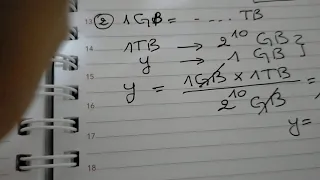 13 ② 1GB = - .... TB
14 1TB → 2^10 GB }
15 y → 1 GB }
y = 1GB × 1TB / 2^10 GB =
y =
18